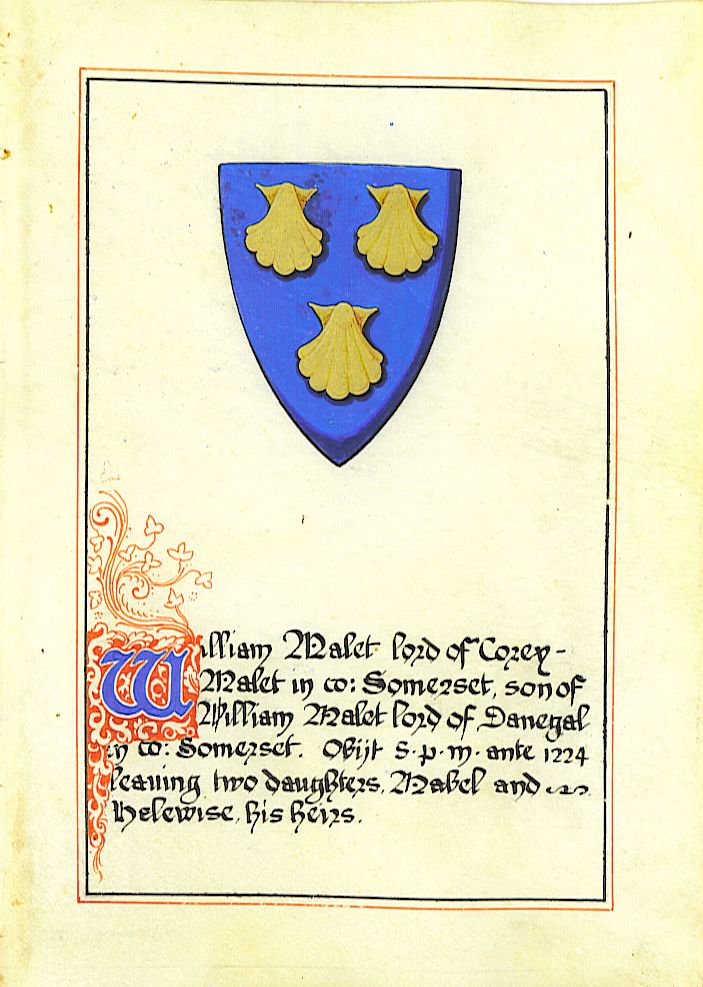 William Malet lord of Corey-
Malet in co: Somerset, son of
William Malet lord of Danegal
in co: Somerset. Obijt s.p.m. ante 1224
leaving two daughters, Mabel and
Helewise, his heirs.